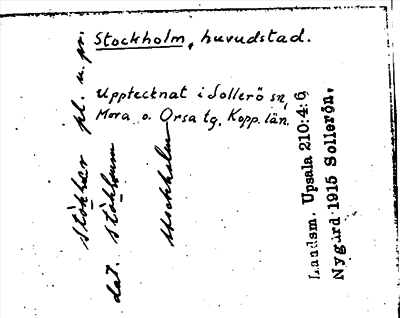 Stockholm, huvudstad.
Upptecknat i Sollerö sn,
Mora o. Orsa tg, Kopp. län.
pl. n. pr.
dat.
Stockholm
Landsm. Upsala 210:4:6,
Nygård 1915 Sollerön.